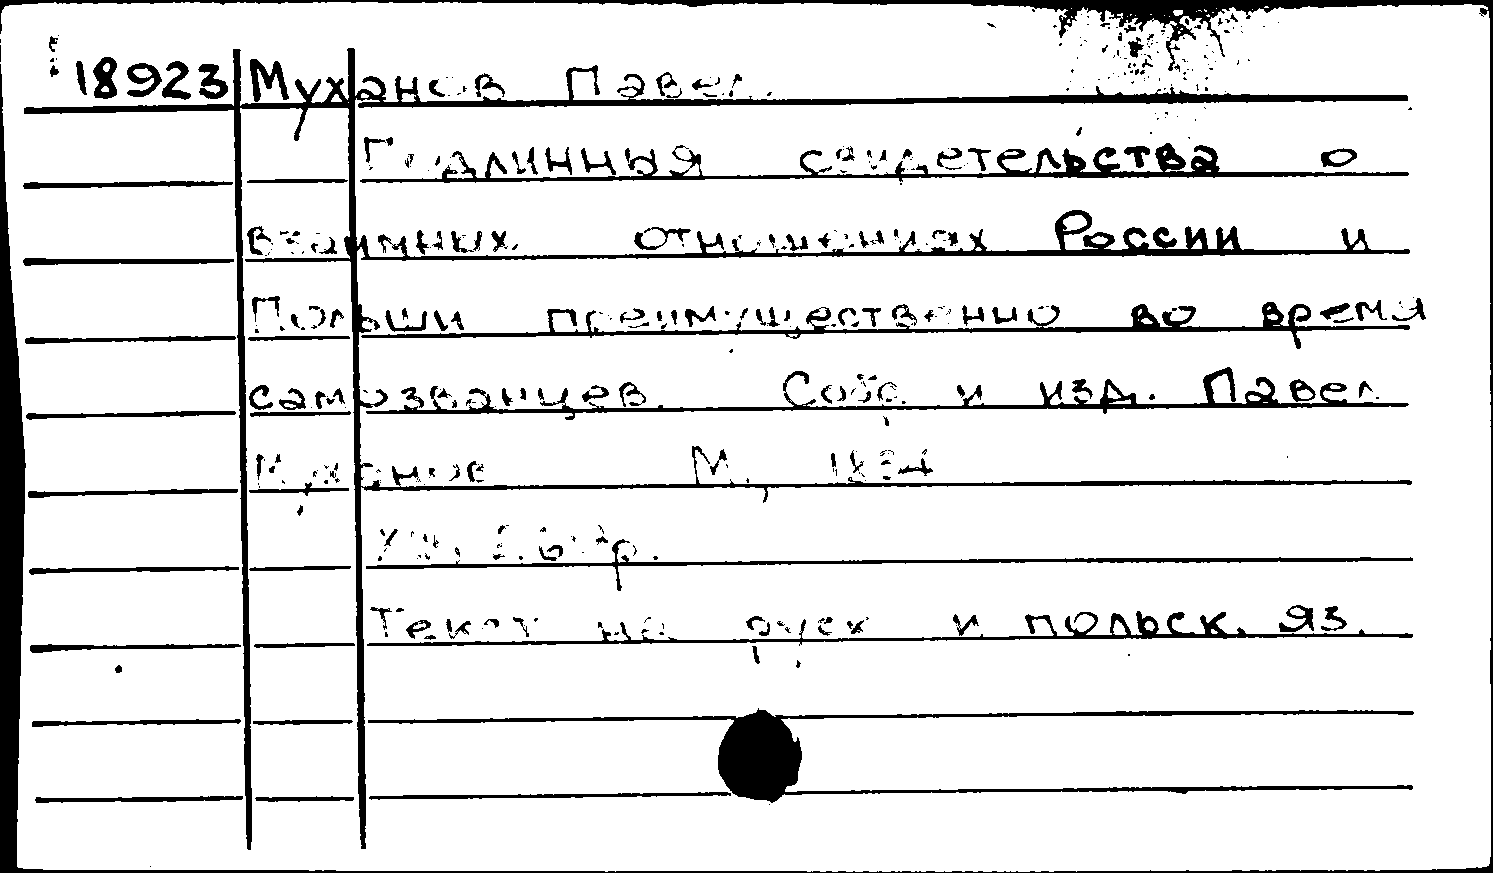 18923 Муханов Павел.
Подлинныя свидетельства о
взаимных отношениях России и
Польши преимущественно во время
самозванцев. Собр и изд. Павел
Муханов М., 1834
Текст на руск и польск. яз.